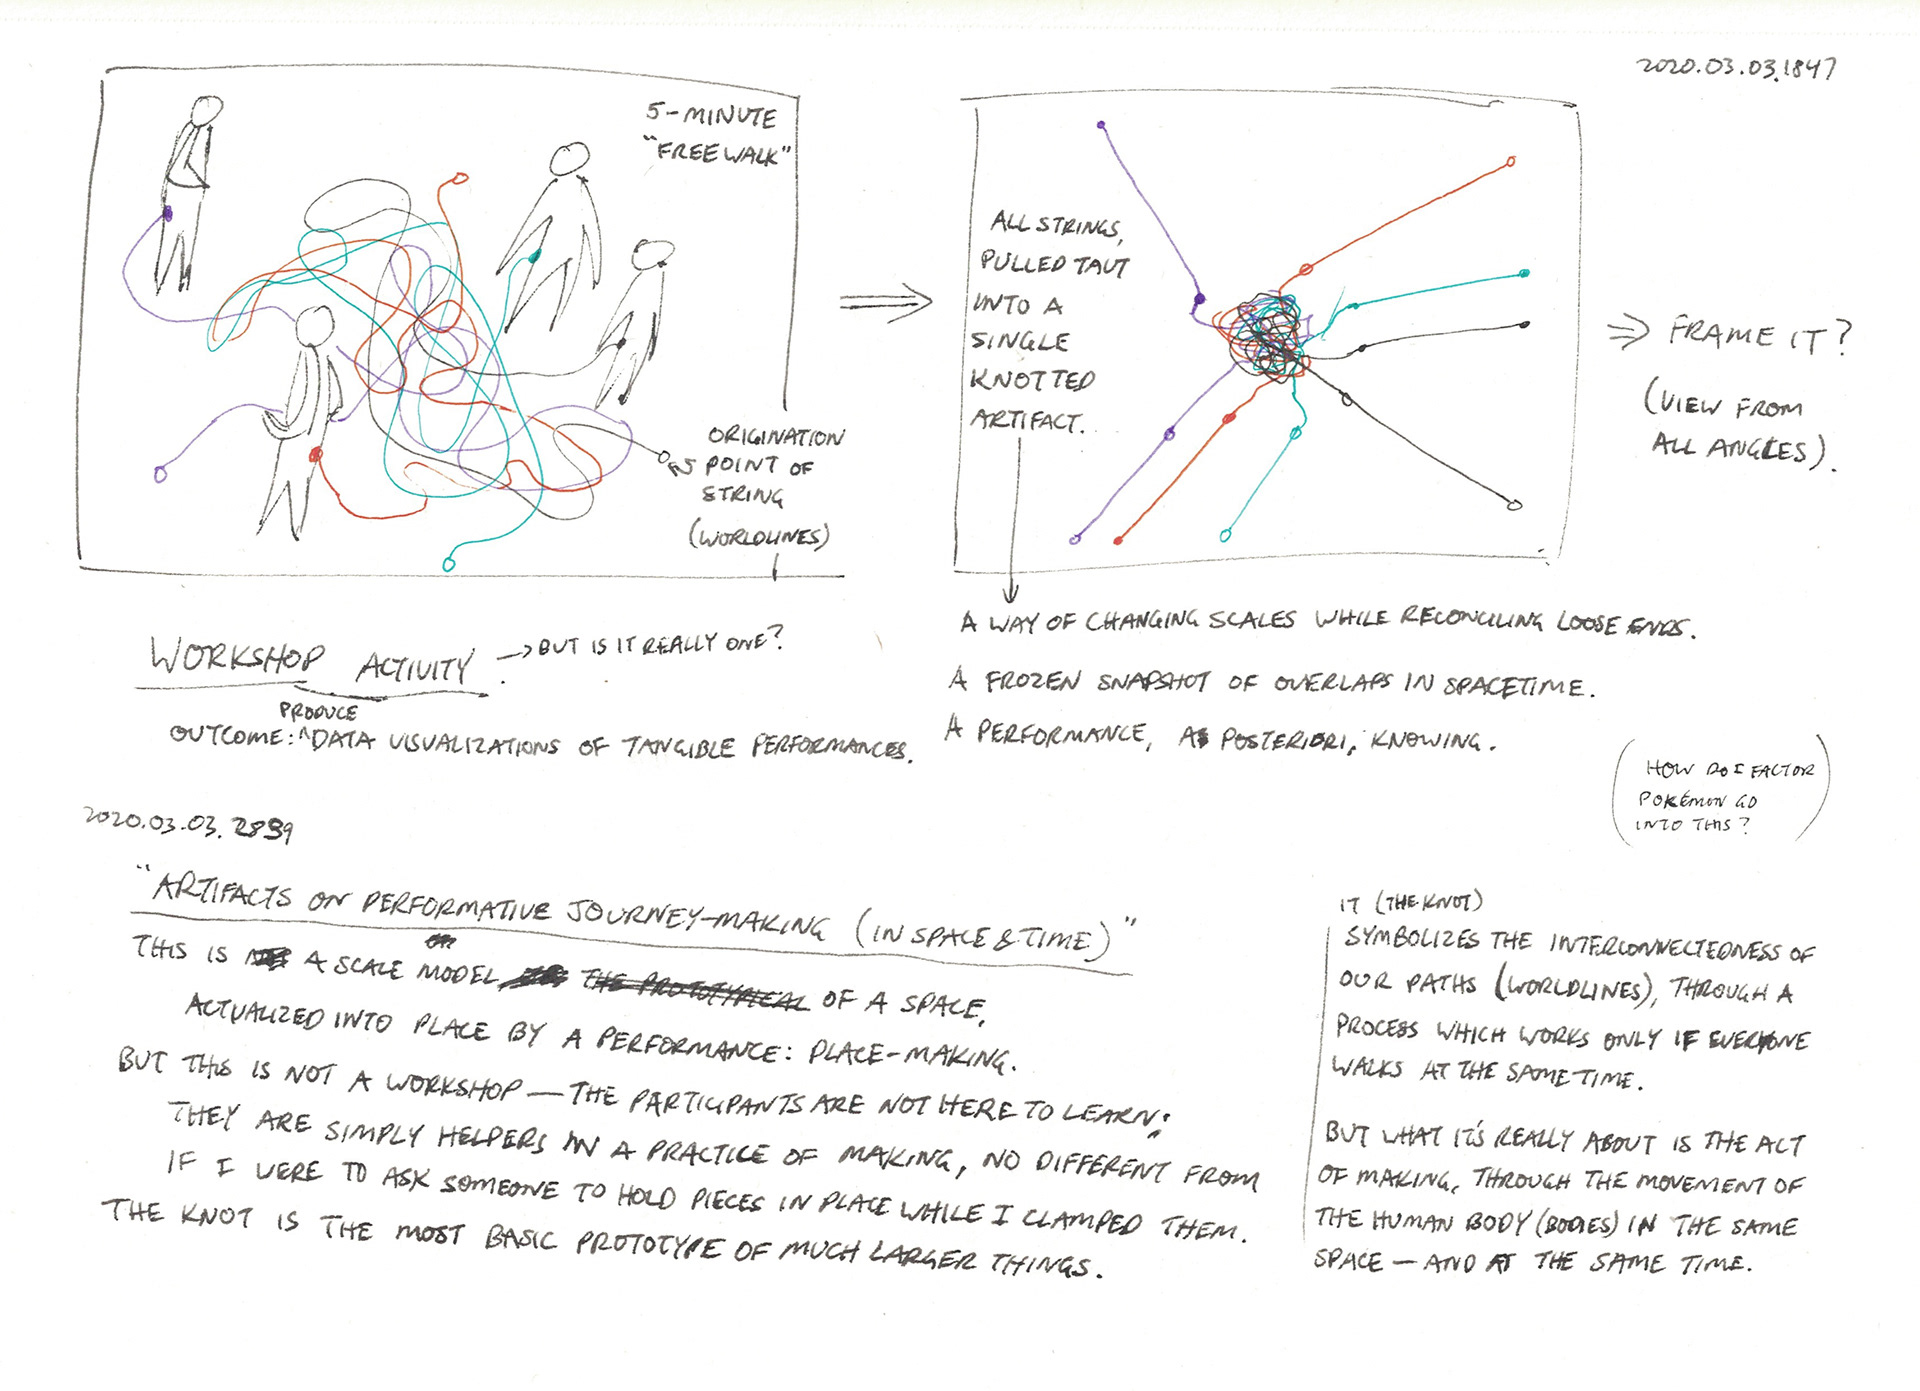 2020.03.03.1847
5-MINUTE
"FREE WALK"
ORIGINATION
POINT OF
STRING
(WORLDLINES)
ALL STRINGS,
PULLED TAUT
INTO A
SINGLE
KNOTTED
ARTIFACT.
FRAME IT?
(VIEW FROM
ALL ANGLES).
WORKSHOP ACTIVITY → BUT IS IT REALLY ONE?
PRODUCE
OUTCOME: ^DATA VISUALIZATIONS OF TANGIBLE PERFORMANCES.
A WAY OF CHANGING SCALES WHILE RECONCILING LOOSE ENDS.
A FROZEN SNAPSHOT OF OVERLAPS IN SPACETIME.
A PERFORMANCE, A POSTERIORI, KNOWING.
(HOW DO I FACTOR
POKÉMON GO
INTO THIS?)
2020.03.03.2839
"ARTIFACTS ON PERFORMATIVE JOURNEY-MAKING (IN SPACE & TIME)"
THIS IS A SCALE MODEL THE PROTOTYPICAL OF A SPACE,
ACTUALIZED INTO PLACE BY A PERFORMANCE: PLACE-MAKING.
BUT THIS IS NOT A WORKSHOP — THE PARTICIPANTS ARE NOT HERE TO LEARN;
THEY ARE SIMPLY HELPERS IN A PRACTICE OF MAKING, NO DIFFERENT FROM
IF I WERE TO ASK SOMEONE TO HOLD PIECES IN PLACE WHILE I CLAMPED THEM.
THE KNOT IS THE MOST BASIC PROTOTYPE OF MUCH LARGER THINGS.
IT (THE KNOT)
SYMBOLIZES THE INTERCONNECTEDNESS OF
OUR PATHS (WORLDLINES), THROUGH A
PROCESS WHICH WORKS ONLY IF EVERYONE
WALKS AT THE SAME TIME.
BUT WHAT IT'S REALLY ABOUT IS THE ACT
OF MAKING, THROUGH THE MOVEMENT OF
THE HUMAN BODY (BODIES) IN THE SAME
SPACE — AND AT THE SAME TIME.